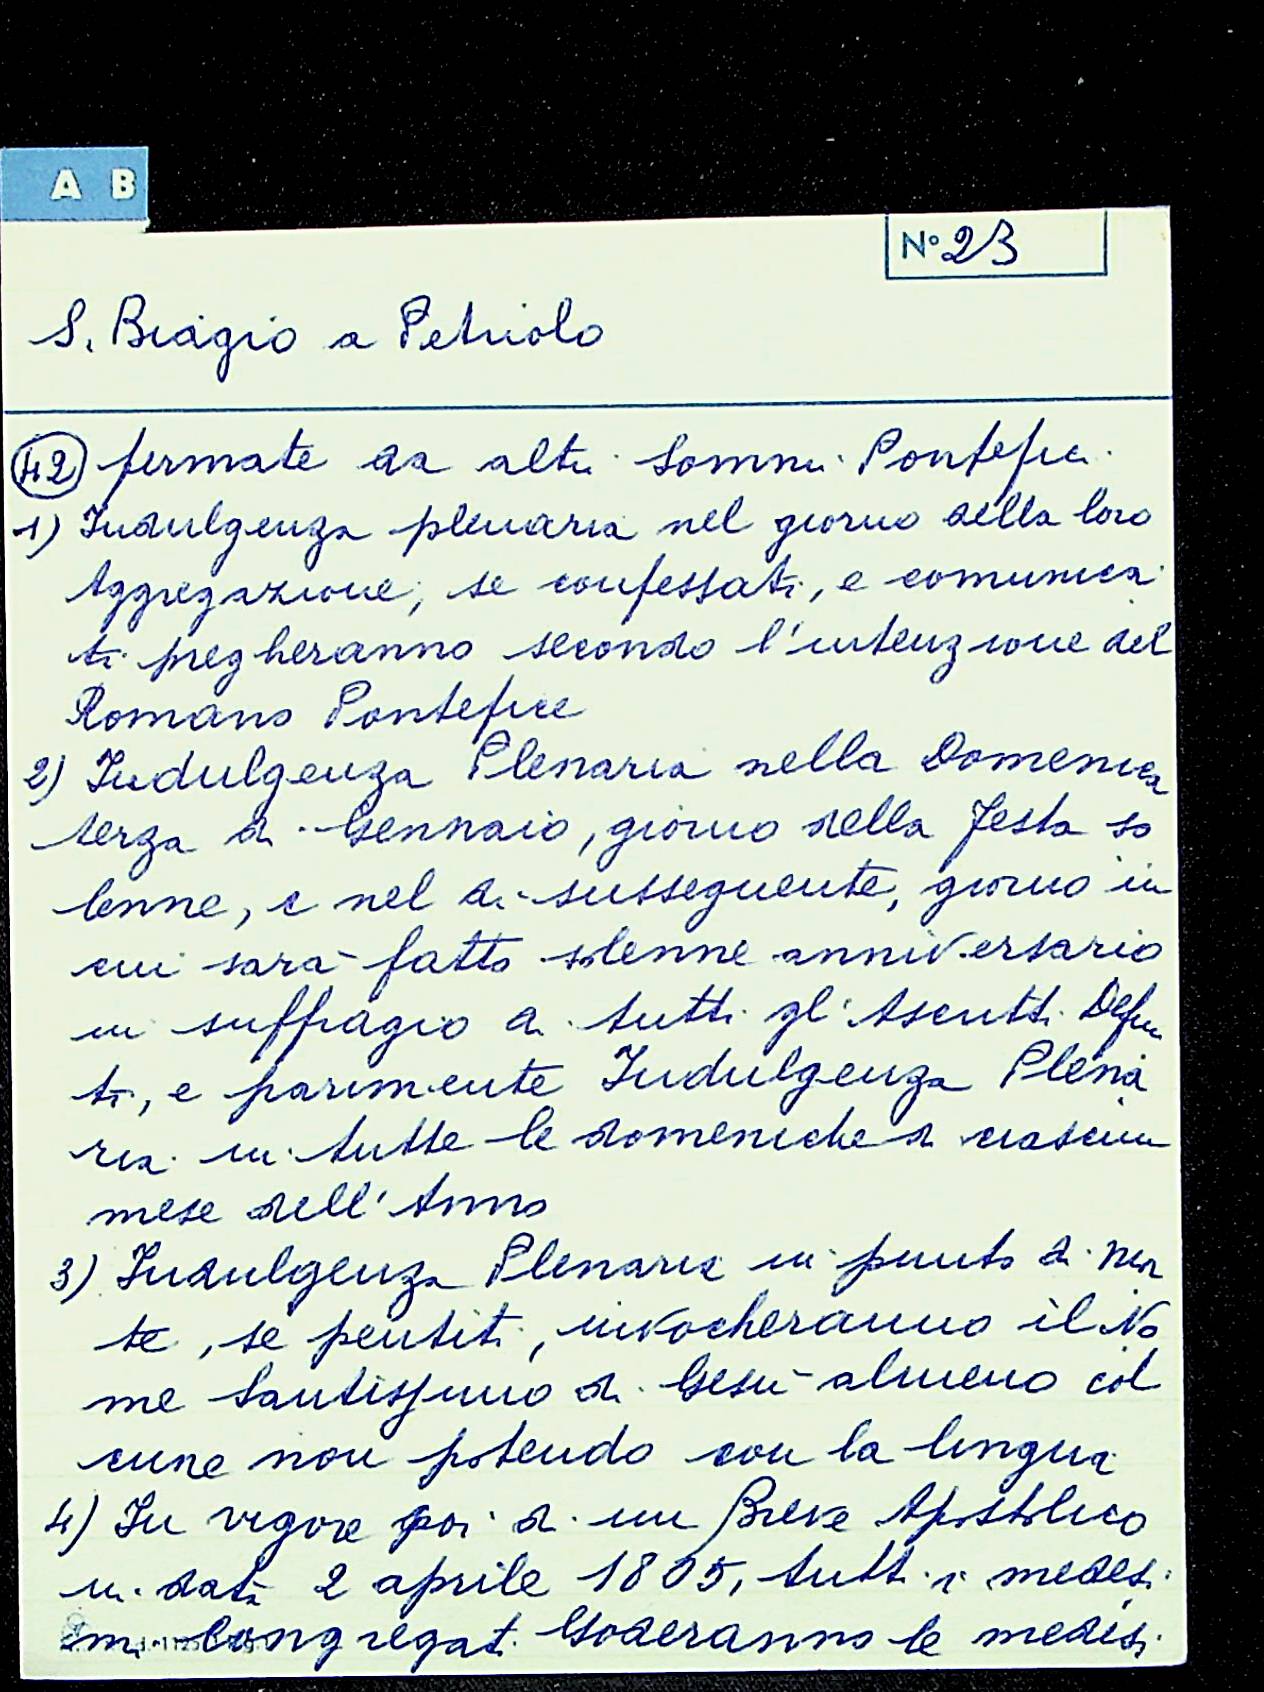 A B
N° 23
S. Biagio a Petriolo
42 fermate da altri Sommi Pontefici.
1) Indulgenza plenaria nel giorno della loro
Aggregazione, se confessati, e comunica
ti pregheranno secondo l'intenzione del
Romano Pontefice
2) Indulgenza Plenaria nella Domenica
terza di Gennaio, giorno della Festa so
lenne, e nel dì susseguente, giorno in
cui sarà fatto solenne anniversario
in suffragio di tutti gl'Ascritti Defun
ti, e parimente Indulgenza Plena
ria in tutte le domeniche di ciascun
mese dell'Anno
3) Indulgenza Plenaria in punto di mor
te, se pentiti, invocheranno il No
me Santissimo di Gesù almeno col
cuore non potendo con la lingua
4) In vigore poi di un Breve Apostolico
in data 2 aprile 1805, tutti i medesi
mi Congregati Goderanno le medesi